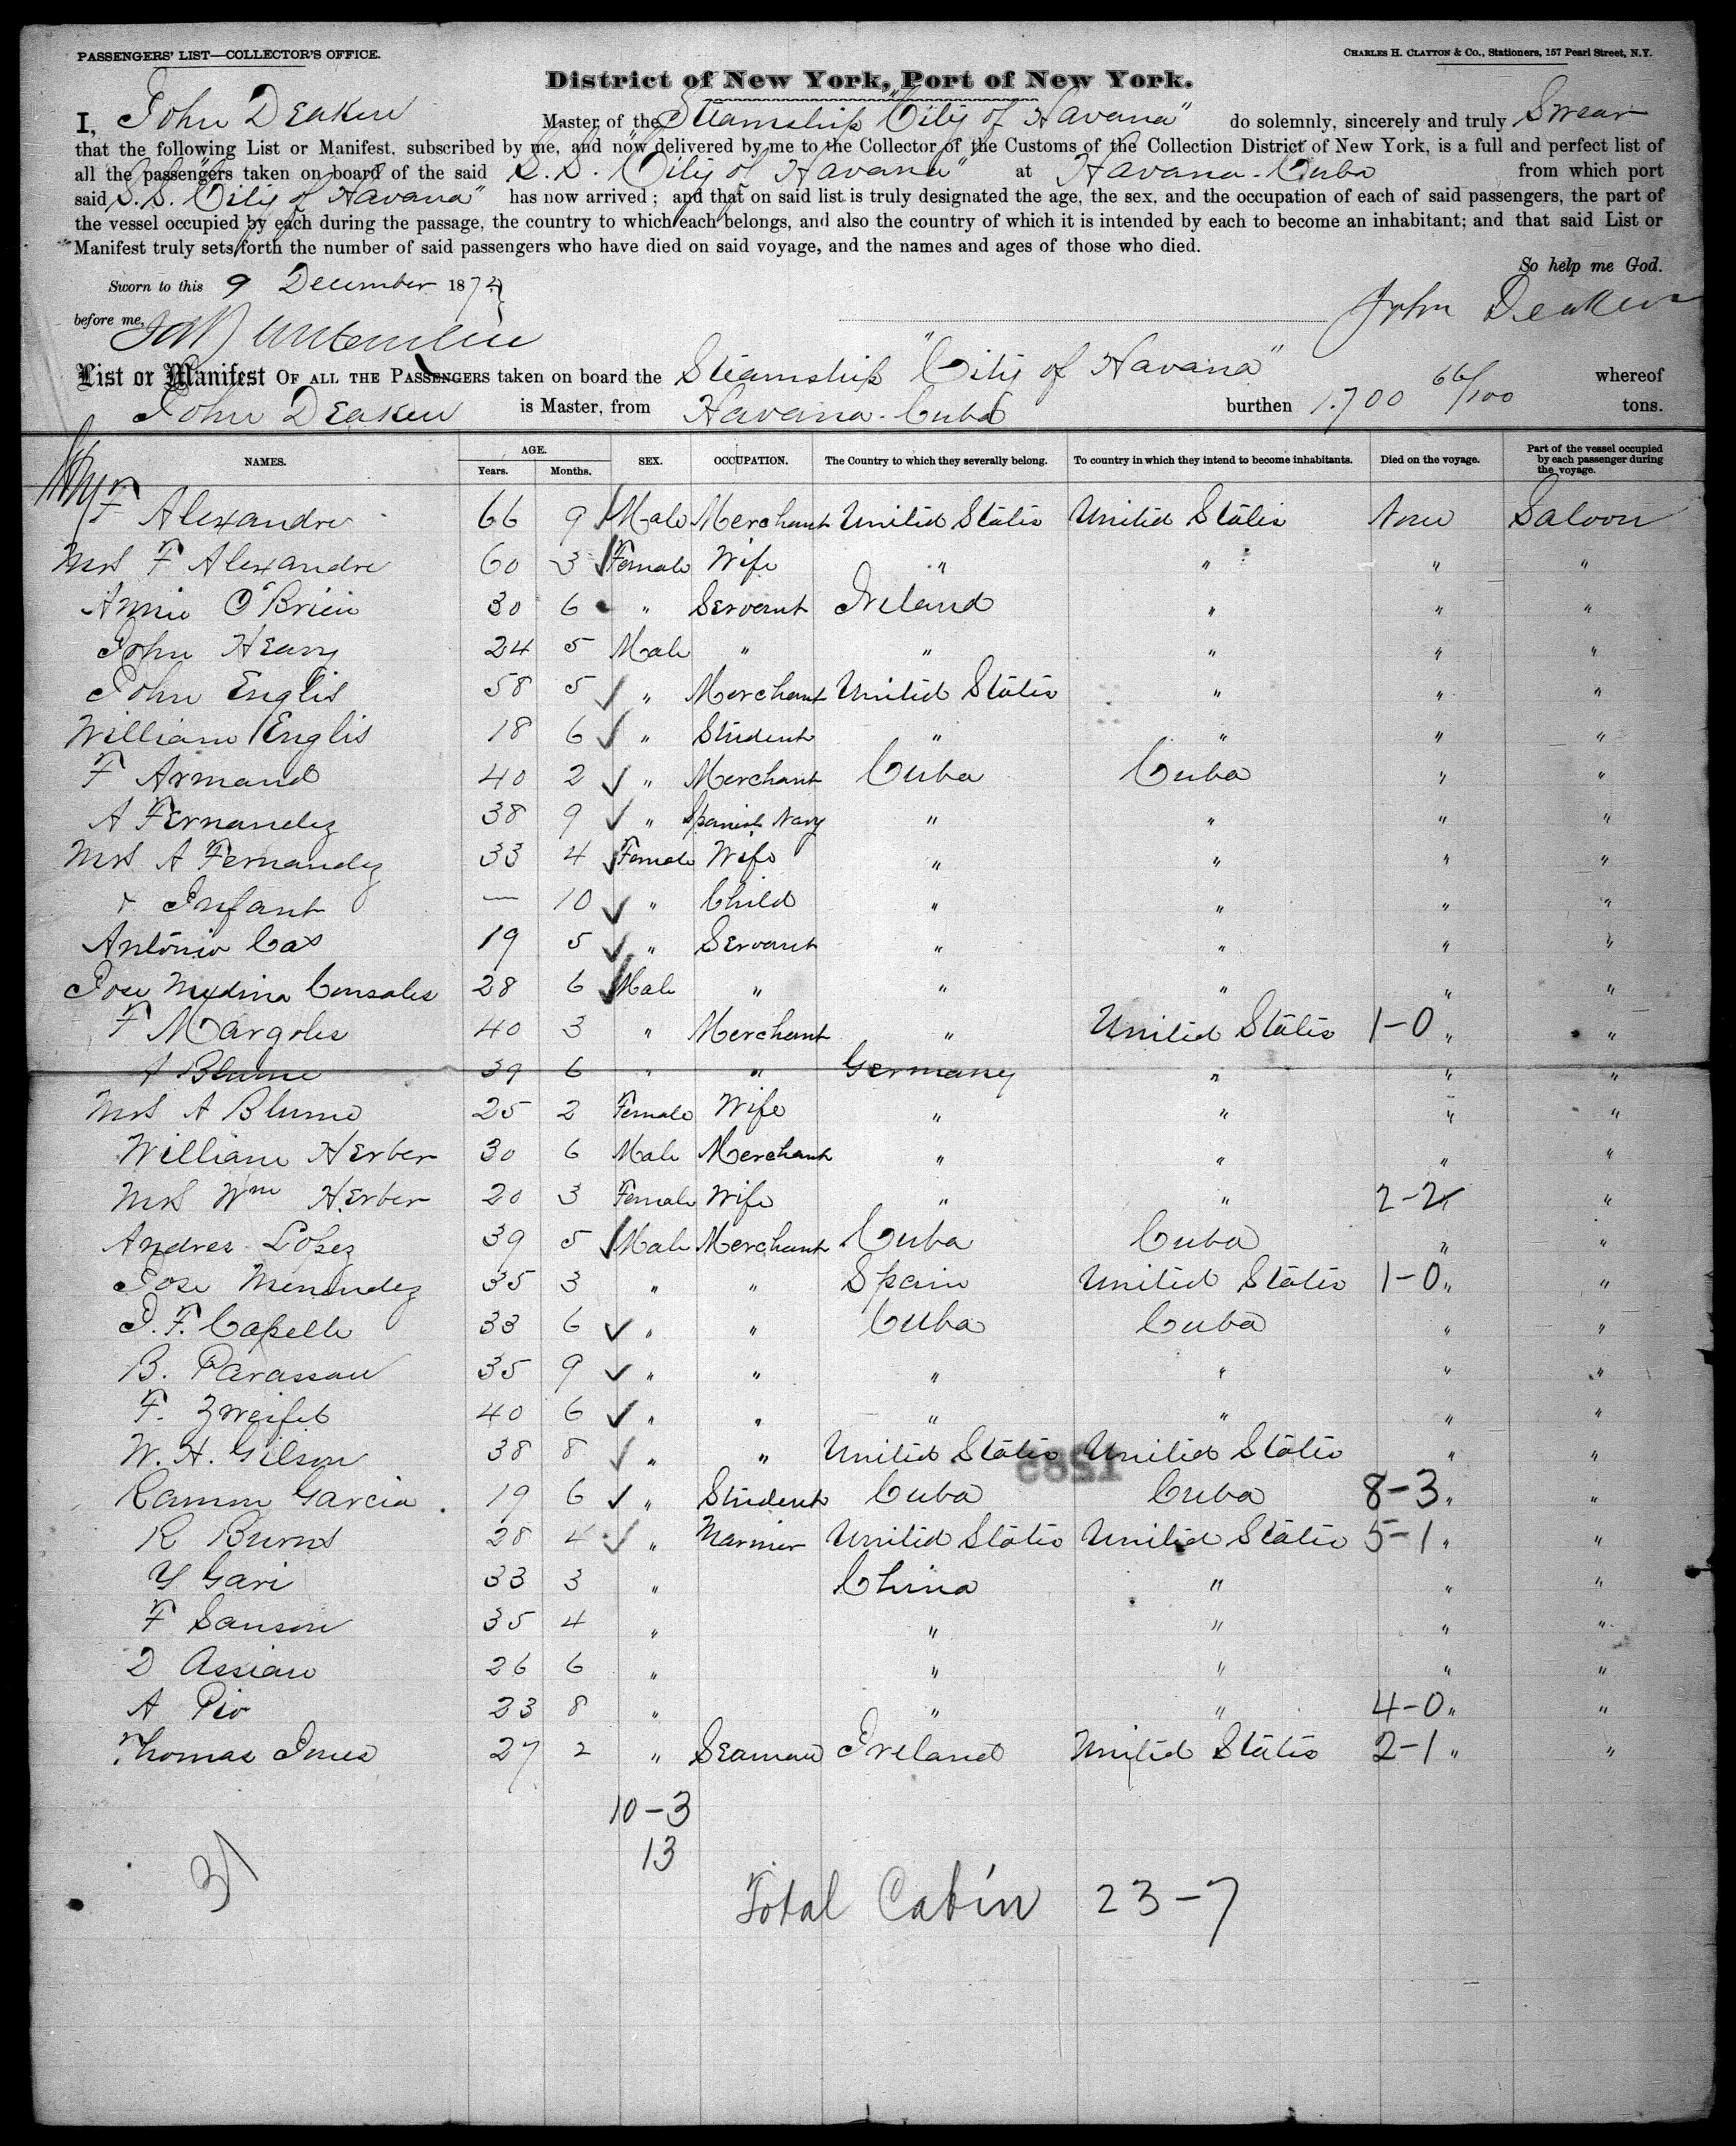 PASSENGERS' LIST—COLLECTOR'S OFFICE.
CHARLES H. CLAYTON & Co., Stationers, 157 Pearl Street, N.Y.
District of New York, Port of New York.
I, John Deaken Master of the Steamship "City of Havana" do solemnly, sincerely and truly Swear
that the following List or Manifest, subscribed by me, and now delivered by me to the Collector of the Customs of the Collection District of New York, is a full and perfect list of
all the passengers taken on board of the said S.S. "City of Havana" at Havana - Cuba from which port
said S.S. "City of Havana" has now arrived; and that on said list is truly designated the age, the sex, and the occupation of each of said passengers, the part of
the vessel occupied by each during the passage, the country to which each belongs, and also the country of which it is intended by each to become an inhabitant; and that said List or
Manifest truly sets forth the number of said passengers who have died on said voyage, and the names and ages of those who died.
So help me God.
Sworn to this 9 December 187
before me,
John Deaken
List or Manifest OF ALL THE PASSENGERS taken on board the Steamship "City of Havana" whereof
John Deaken is Master, from Havana - Cuba burthen 1.700 66/100 tons.
NAMES. AGE. Years. Months. SEX. OCCUPATION. The Country to which they severally belong. To country in which they intend to become inhabitants. Died on the voyage. Part of the vessel occupied by each passenger during the voyage.
F Alexandre 66 9 Male Merchant United States United States None Saloon
Mrs F Alexandre 60 3 Female Wife " " " "
Annie O'Brien 30 6 " Servant Ireland " " "
John Heavy 24 5 Male " " " " "
John Englis 58 5 " Merchant United States " " "
William Englis 18 6 " Student " " " "
F Armand 40 2 " Merchant Cuba Cuba " "
A Fernandez 38 9 " Spanish Navy " " " "
Mrs A Fernandez 33 4 Female Wife " " " "
+ Infant — 10 " Child " " " "
Antonio Cas 19 5 " Servant " " " "
Jose Medina Consales 28 6 Male " " " " "
F Margoles 40 3 " Merchant " United States 1-0 " "
A Blume 39 6 " " Germany " " "
Mrs A Blume 25 2 Female Wife " " " "
William Herber 30 6 Male Merchant " " " "
Mrs Wm Herber 20 3 Female Wife " " 2-2 "
Andres Lopez 39 5 Male Merchant Cuba Cuba " "
Jose Menendez 35 3 " " Spain United States 1-0 " "
J. F. Capelle 33 6 " " Cuba Cuba " "
B. Parassau 35 9 " " " " " "
F. Zweifel 40 6 " " " " " "
W. H. Gilson 38 8 " " United States United States " "
Ramon Garcia 19 6 " Student Cuba Cuba 8-3 " "
R Burns 28 4 " Mariner United States United States 5-1 " "
Y Gari 33 3 " China " " "
F Sanson 35 4 " " " " "
D Assian 26 6 " " " " "
A Pio 23 8 " " " 4-0 " "
Thomas Jones 27 2 " Seaman Ireland United States 2-1 " "
10-3
13
31
Total Cabin 23-7